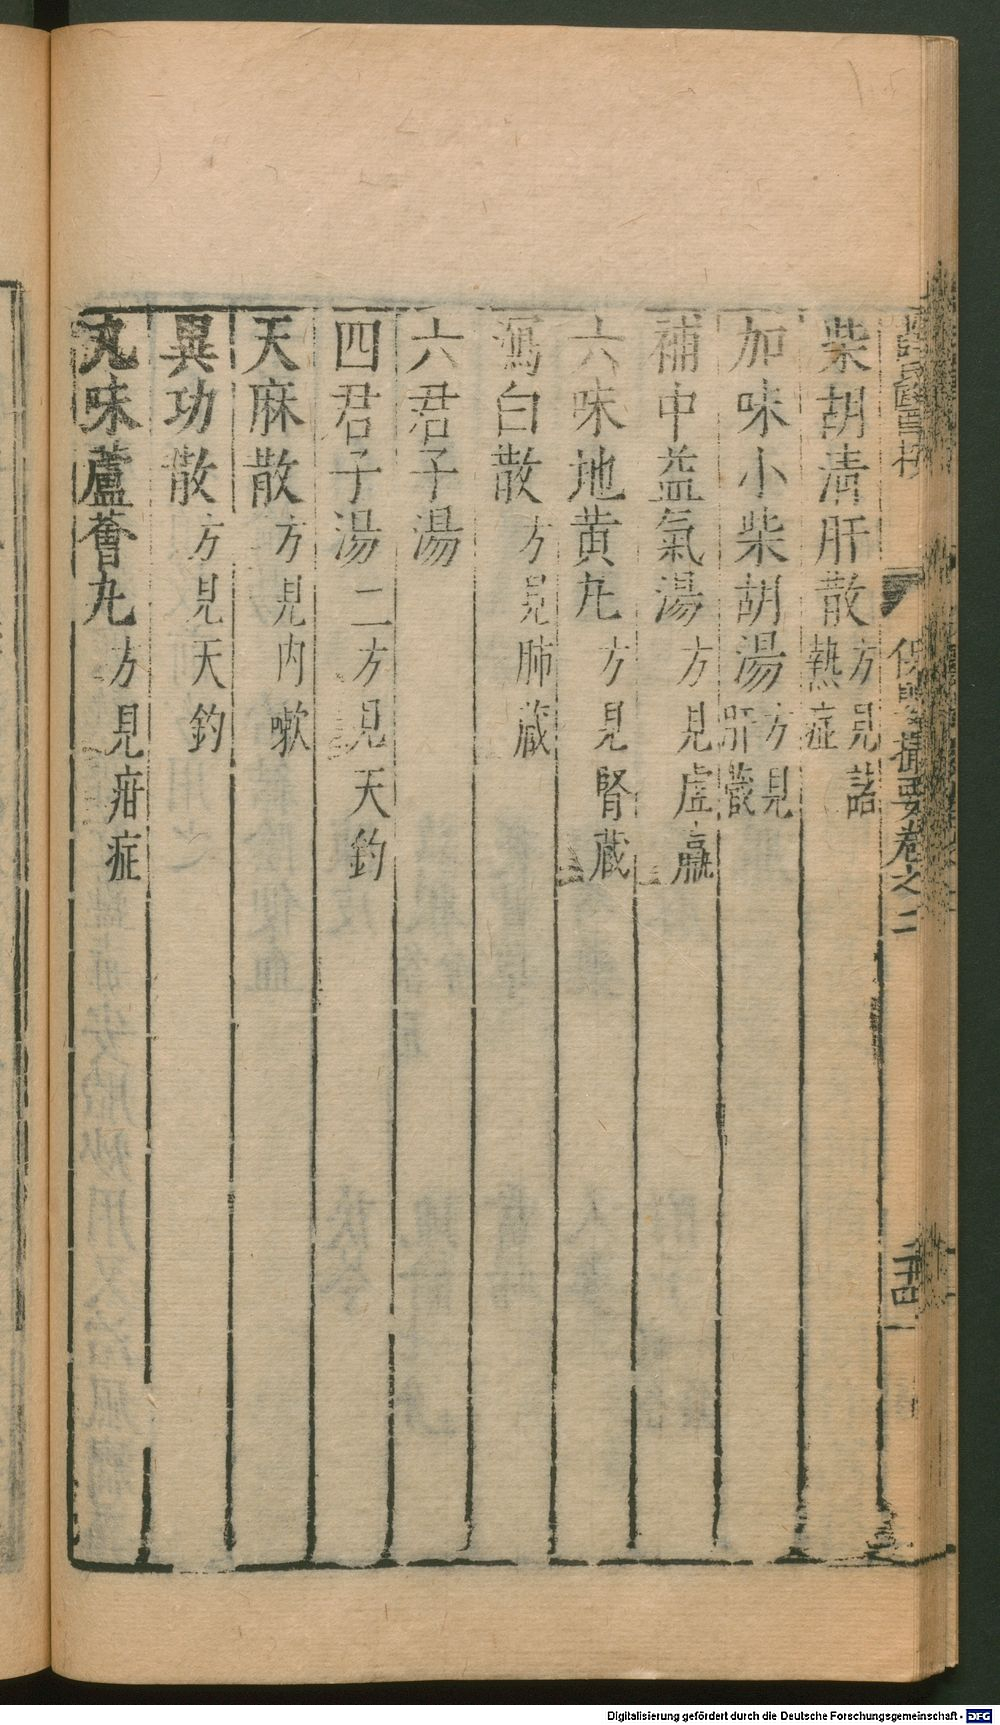 保嬰撮要卷之二
柴胡清肝散方見諸熱症
加味小柴胡湯方見肝臟
補中益氣湯方見虛羸
六味地黃丸方見腎臟
瀉白散方見肺臟
六君子湯
四君子湯二方見天釣
天麻散方見內嗽
異功散方見天釣
九味蘆薈丸方見疳症
Digitalisierung gefördert durch die Deutsche Forschungsgemeinschaft - DFG